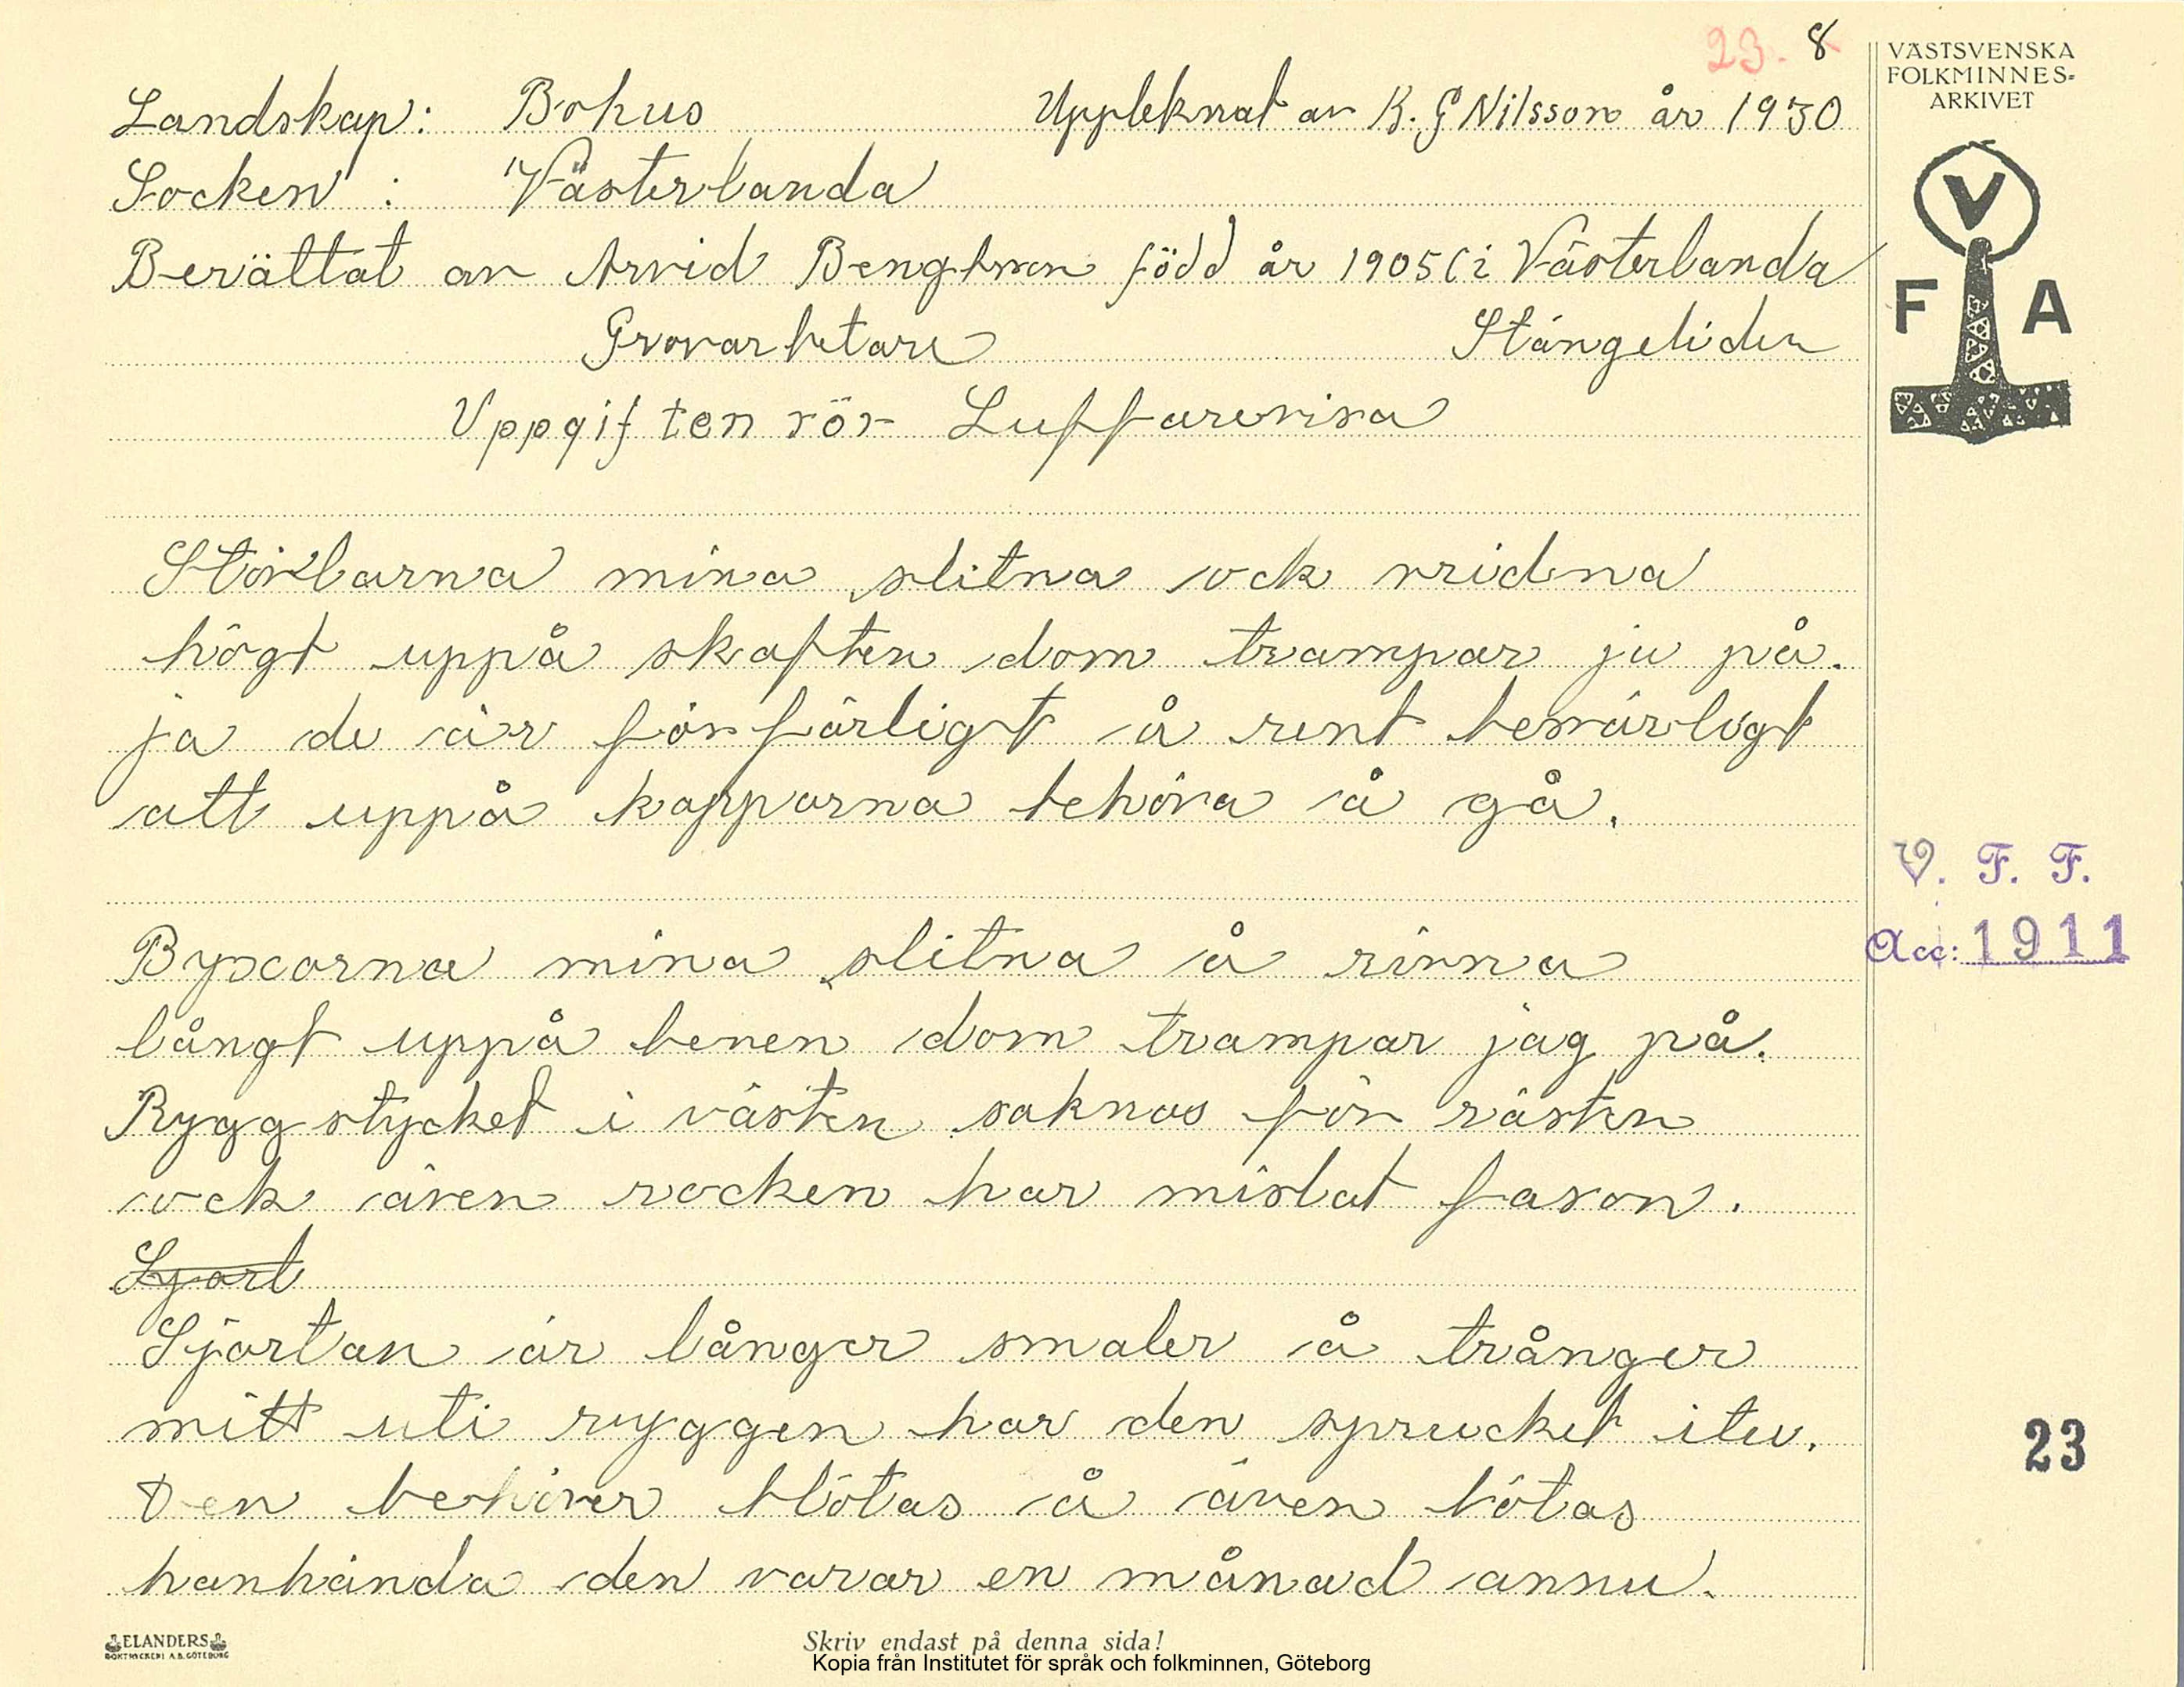 23. 8
VÄSTSVENSKA
FOLKMINNES=
ARKIVET
Landskap: Bohus Uppteknat av K. G Nilsson år 1930
Socken : Västerlanda
V
Berättat av Arvid Bengtson född år 1905 (i Västerlanda
F A
Grovarbetare Stängeliden
Uppgiften rör Luffarevisa
Stövlarna mina slitna ock vridna
högt uppå skaften dom trampar ju på.
ja de är förfärligt å rent besvärligt
att uppå kapparna behöva å gå.
V. F. F.
Acc: 1911
Byxorna mina slitna å rivna
långt uppå benen dom trampar jag på.
Ryggstycket i västen saknas för rästen
ock även rocken har mistat fason.
Sjort
Sjortan är långer smaler å trånger
mitt uti ryggen har den sprucket itu.
23
Den behöver blötas å även bötas
hanhända den varar en månad annu.
ELANDERS
BOKTRYCKERI A.B. GÖTEBORG
Skriv endast på denna sida!
Kopia från Institutet för språk och folkminnen, Göteborg